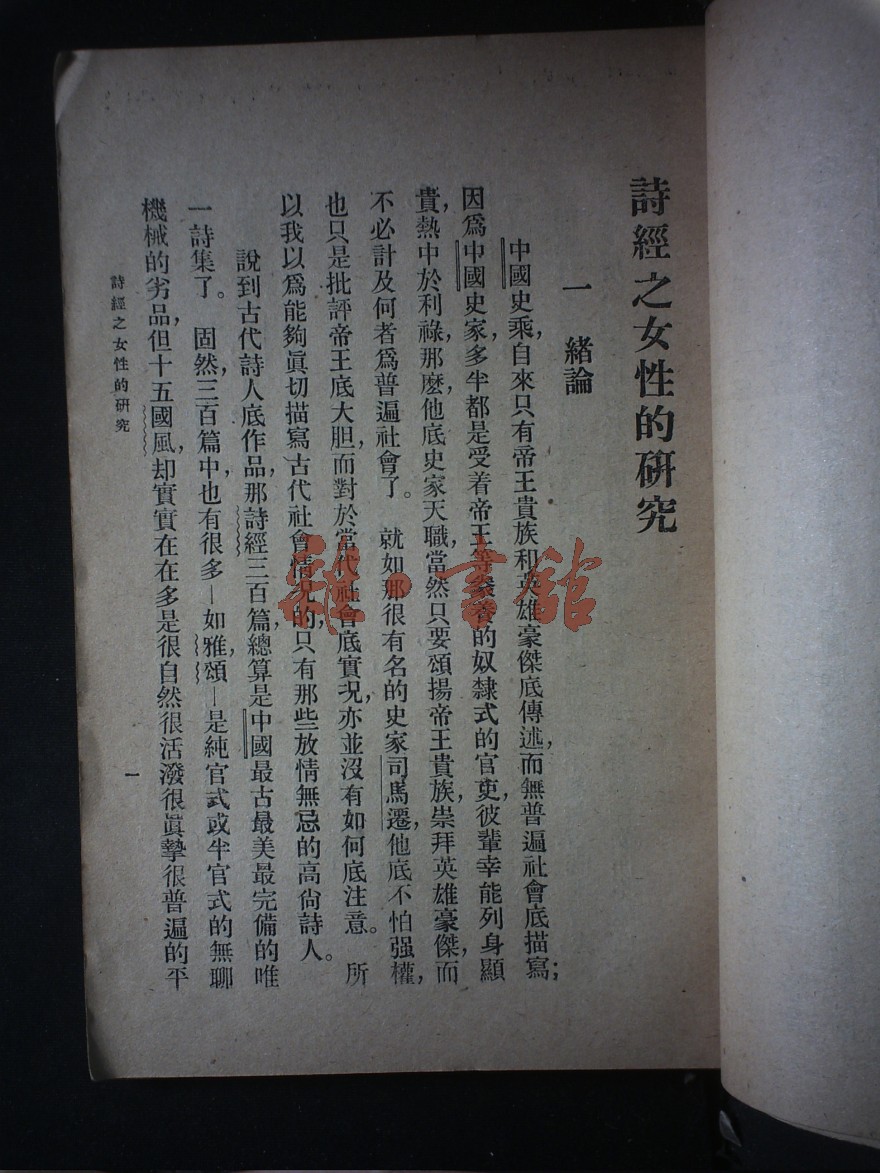 詩經之女性的研究
一　緒論
中國史乘，自來只有帝王貴族和英雄豪傑底傳述，而無普遍社會底描寫；
因爲中國史家，多半都是受着帝王等豢養的奴隸式的官吏，彼輩幸能列身顯
貴，熱中於利祿，那麽他底史家天職，當然只要頌揚帝王貴族，崇拜英雄豪傑，而
不必計及何者爲普遍社會了。就如那很有名的史家司馬遷，他底不怕强權，
也只是批評帝王底大胆，而對於當代社會底實況，亦並沒有如何底注意。所
以我以爲能夠眞切描寫古代社會情況的，只有那些放情無忌的高尙詩人。
說到古代詩人底作品，那詩經三百篇，總算是中國最古最美最完備的唯
一詩集了。固然，三百篇中，也有很多—如雅，頌—是純官式或半官式的無聊
機械的劣品，但十五國風，却實實在在多是很自然很活潑很眞摯很普遍的平
詩經之女性的研究
一
雜·書館